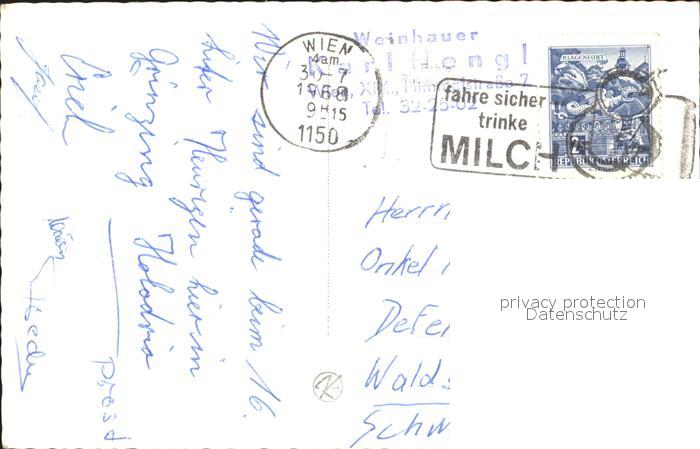 Wir sind gerade beim 16.
hier Heurigen hier in
Grinzing Holodria
Erich
Prosd
WIEN
3.-7
1968
9H15
1150
Weinhauer
Karl Hengl
Tel. 32-25-02
fahre sicher
trinke
MILCH
KLAGENFURT
REPUBLIK ÖSTERREICH
Herrn
Onkel
Defer
Walds
Schw
privacy protection
Datenschutz